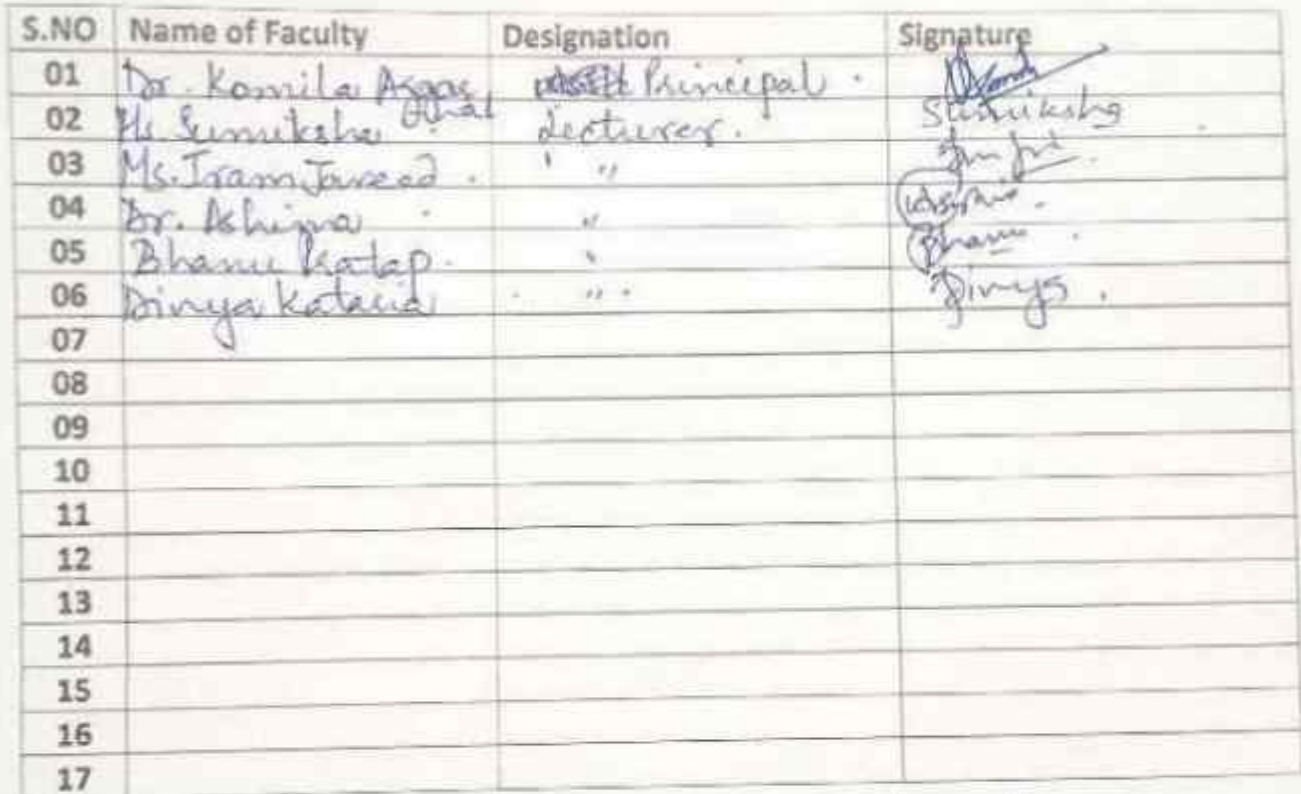 S.NO Name of Faculty Designation Signature
01 Dr. Komila Principal
02 Ms. Sumiksha Lecturer. Sumiksha
03 Ms. Iram Javeed . "
04 Dr. Ashima "
05 Bhanu " Bhanu
06 Divya Kataria " Divya
07
08
09
10
11
12
13
14
15
16
17